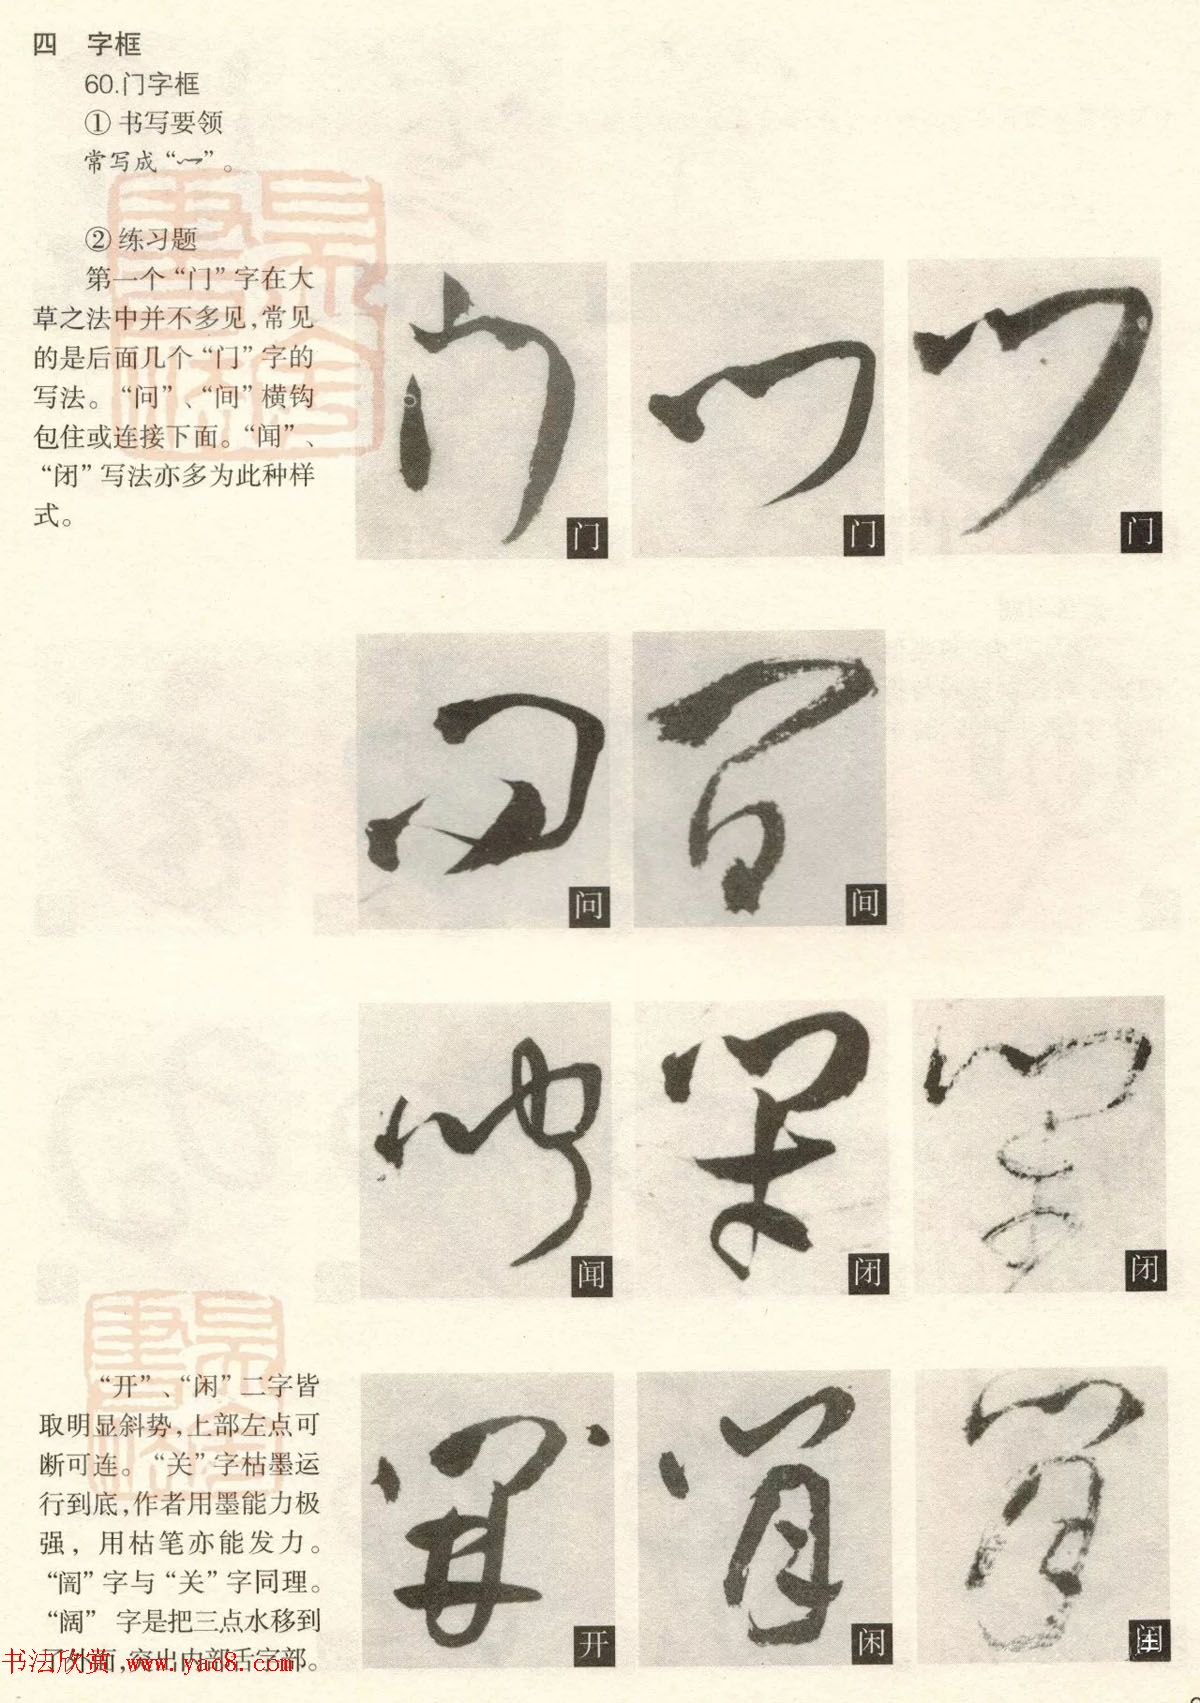 四 字框
60.门字框
① 书写要领
常写成“
”。
② 练习题
第一个“门”字在大
草之法中并不多见，常见
的是后面几个“门”字的
写法。“问”、“间”横钩
包住或连接下面。“闻”、
“闭”写法亦多为此种样
式。
门
门
门
问
间
闻
闭
闭
“开”、“闲”二字皆
取明显斜势，上部左点可
断可连。“关”字枯墨运
行到底，作者用墨能力极
强，用枯笔亦能发力。
“闇”字与“关”字同理。
“阔”字是把三点水移到
了外面，突出内部舌字部。
开
闲
书法欣赏 www.yac8.com